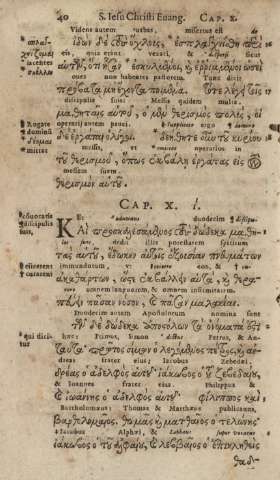 40 S. Iesu Christi Euang. CAP. X.
Videns autem turbas, misertus est
ἰδὼν δὲ τοὺς ὄχλους, ἐσπλαγχνίσθη περὶ
αὐτῶν, ὅτι ἦσαν ἐσκυλμένοι, ἢ ἐρριμμένοι ὡσεὶ
oues non habentes pastorem. Tunc dicit
πρόβατα μὴ ἔχοντα ποιμένα. τότε λέγει τοῖς
discipulis suis: Messis quidem multa,
μαθηταῖς αὐτοῦ, ὁ μὲν θερισμὸς πολὺς, οἱ
Rogate
operarij autem pauci. ergo
δὲ ἐργάται ὀλίγοι. δεήθητε οὖν τοῦ κυρίου
messis, vt operarios in
τοῦ θερισμοῦ, ὅπως ἐκβάλῃ ἐργάτας εἰς τὸν
messem suam.
θερισμὸν αὐτοῦ.
CAP. X. ί.
Et duodecim
Καὶ προσκαλεσάμενος τοὺς δώδεκα μαθη-
suos, dedit illis potestatem spirituum
τὰς αὐτοῦ, ἔδωκεν αὐτοῖς ἐξουσίαν πνευμάτων
immundorum, vt eos, &
ἀκαθάρτων, ὥστε ἐκβάλλειν αὐτὰ, ἢ θερα-
omnem languorem, & omnem infirmitatem.
πεύειν πᾶσαν νόσον, ἢ πᾶσαν μαλακίαν.
Duodecim autem Apostolorum nomina sunt
τῶν δὲ δώδεκα ἀποστόλων τὰ ὀνόματά ἐστι
hæc: Primus, Simon Petrus, & An-
ταῦτα· πρῶτος σίμων ὁ λεγόμενος πέτρος, ἢ ἀν-
dreas frater eius, Iacobus Zebedæi,
δρέας ὁ ἀδελφὸς αὐτοῦ· ἰάκωβος ὁ τοῦ ζεβεδαίου,
& Ioannes frater eius. Philippus &
ἢ ἰωάννης ὁ ἀδελφὸς αὐτοῦ· φίλιππος καὶ
Bartholomæus: Thomas & Matthæus publicanus,
βαρθολομαῖος· θωμᾶς ἢ ματθαῖος ὁ τελώνης·
Iacobus Alphæi &
ἰάκωβος ὁ τοῦ ἀλφαίου, ἢ λεββαῖος ὁ ἐπικληθεὶς
θαδ-